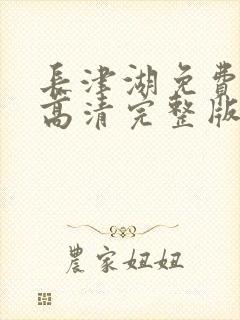 長津湖免費
高清完整版
農家妞妞